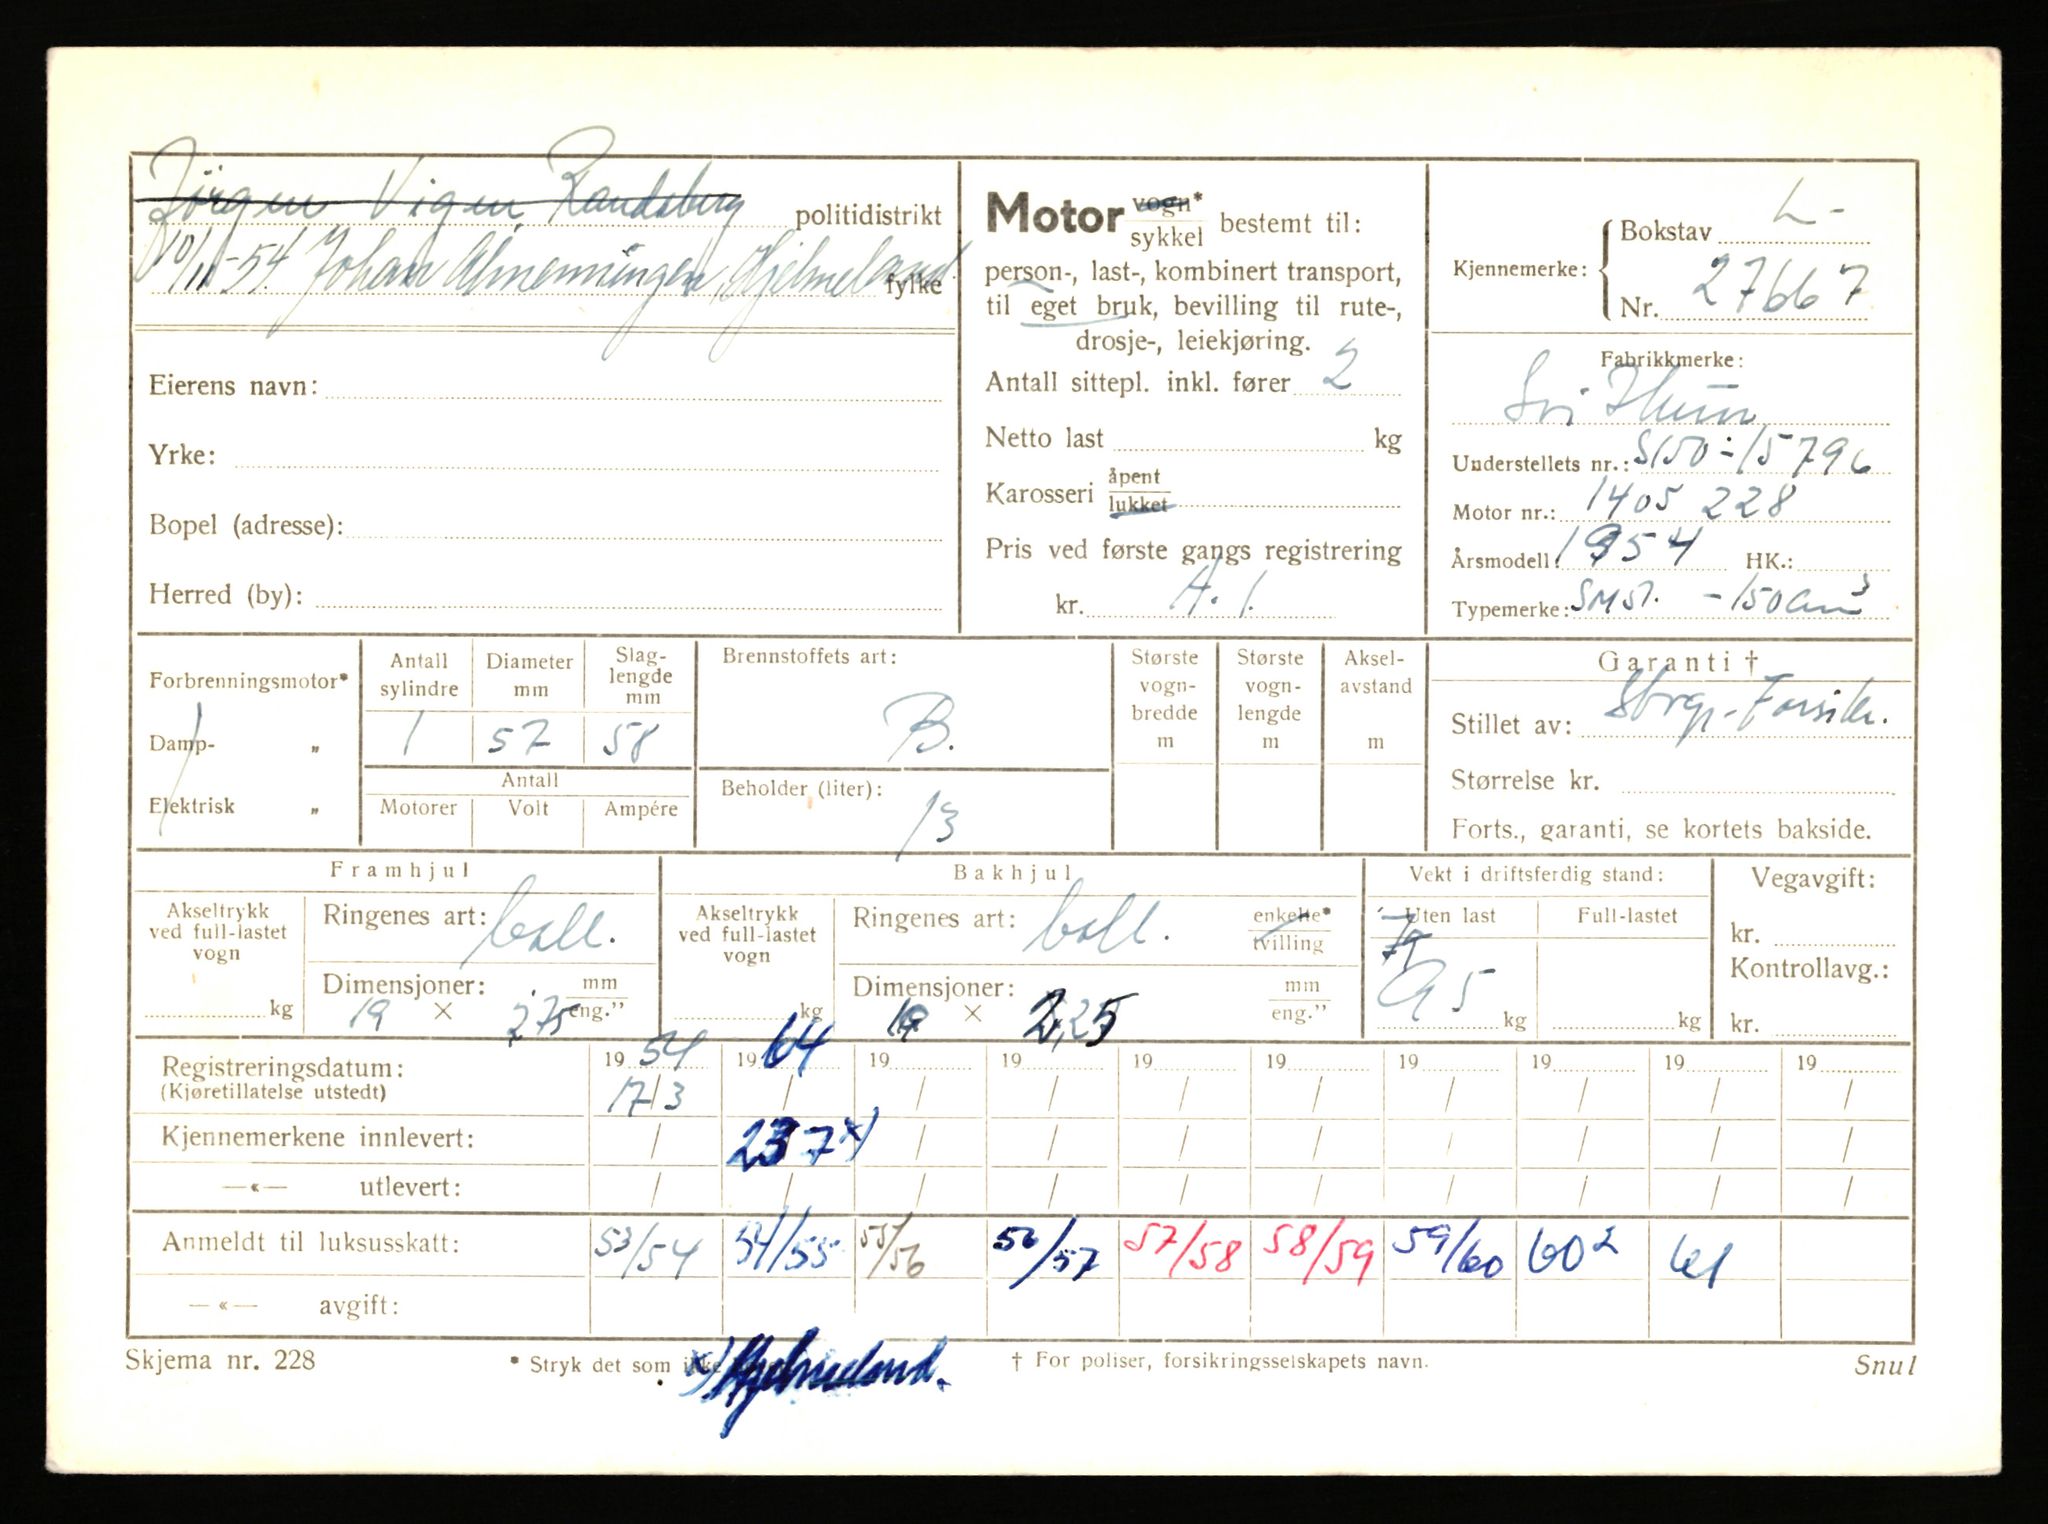 Jørgen Vigen, Randaberg politidistrikt
10/11-54 Johan Almenningen, Hjelmeland fylke
Eierens navn:
Yrke:
Bopel (adresse):
Herred (by):
Motor vogn* sykkel bestemt til:
person-, last-, kombinert transport,
til eget bruk, bevilling til rute-,
drosje-, leiekjøring.
Antall sittepl. inkl. fører 2
Netto last kg
Karosseri åpent lukket
Pris ved første gangs registrering
kr. A. 1.
Kjennemerke: Bokstav L-
Nr. 27667
Fabrikkmerke:
Understellets nr.: S150-15796
Motor nr.: 1405 228
Årsmodell: 1954 HK.:
Typemerke: -150 cm³
Forbrenningsmotor*
Damp- „
Elektrisk „
Antall sylindre Diameter mm Slaglengde mm
1 57 58
Antall
Motorer Volt Ampére
Brennstoffets art:
B.
Beholder (liter):
13
Største vognbredde m
Største vognlengde m
Akselavstand m
Garanti †
Stillet av: -Forsikr.
Størrelse kr.
Forts., garanti, se kortets bakside.
Framhjul
Akseltrykk ved full-lastet vogn kg
Ringenes art: ball.
Dimensjoner: mm eng.”
19 × 2,75
Bakhjul
Akseltrykk ved full-lastet vogn kg
Ringenes art: ball. enkelte* tvilling
Dimensjoner: mm eng.”
19 × 2,25
Vekt i driftsferdig stand:
Uten last Full-lastet
95 kg kg
Vegavgift:
kr.
Kontrollavg.:
kr.
Registreringsdatum: 1954 1964 19 19 19 19 19 19 19 19
(Kjøretillatelse utstedt) 17/3 / / / / / / / / /
Kjennemerkene innlevert: / 23 7 x) / / / / / / / /
—«— utlevert: / / / / / / / / / /
Anmeldt til luksusskatt: 53/54 54/55 55/56 56/57 57/58 58/59 59/60 60² 61
—«— avgift:
Skjema nr. 228 * Stryk det som ikke † For poliser, forsikringsselskapets navn. Snul
x) Hjelmeland.